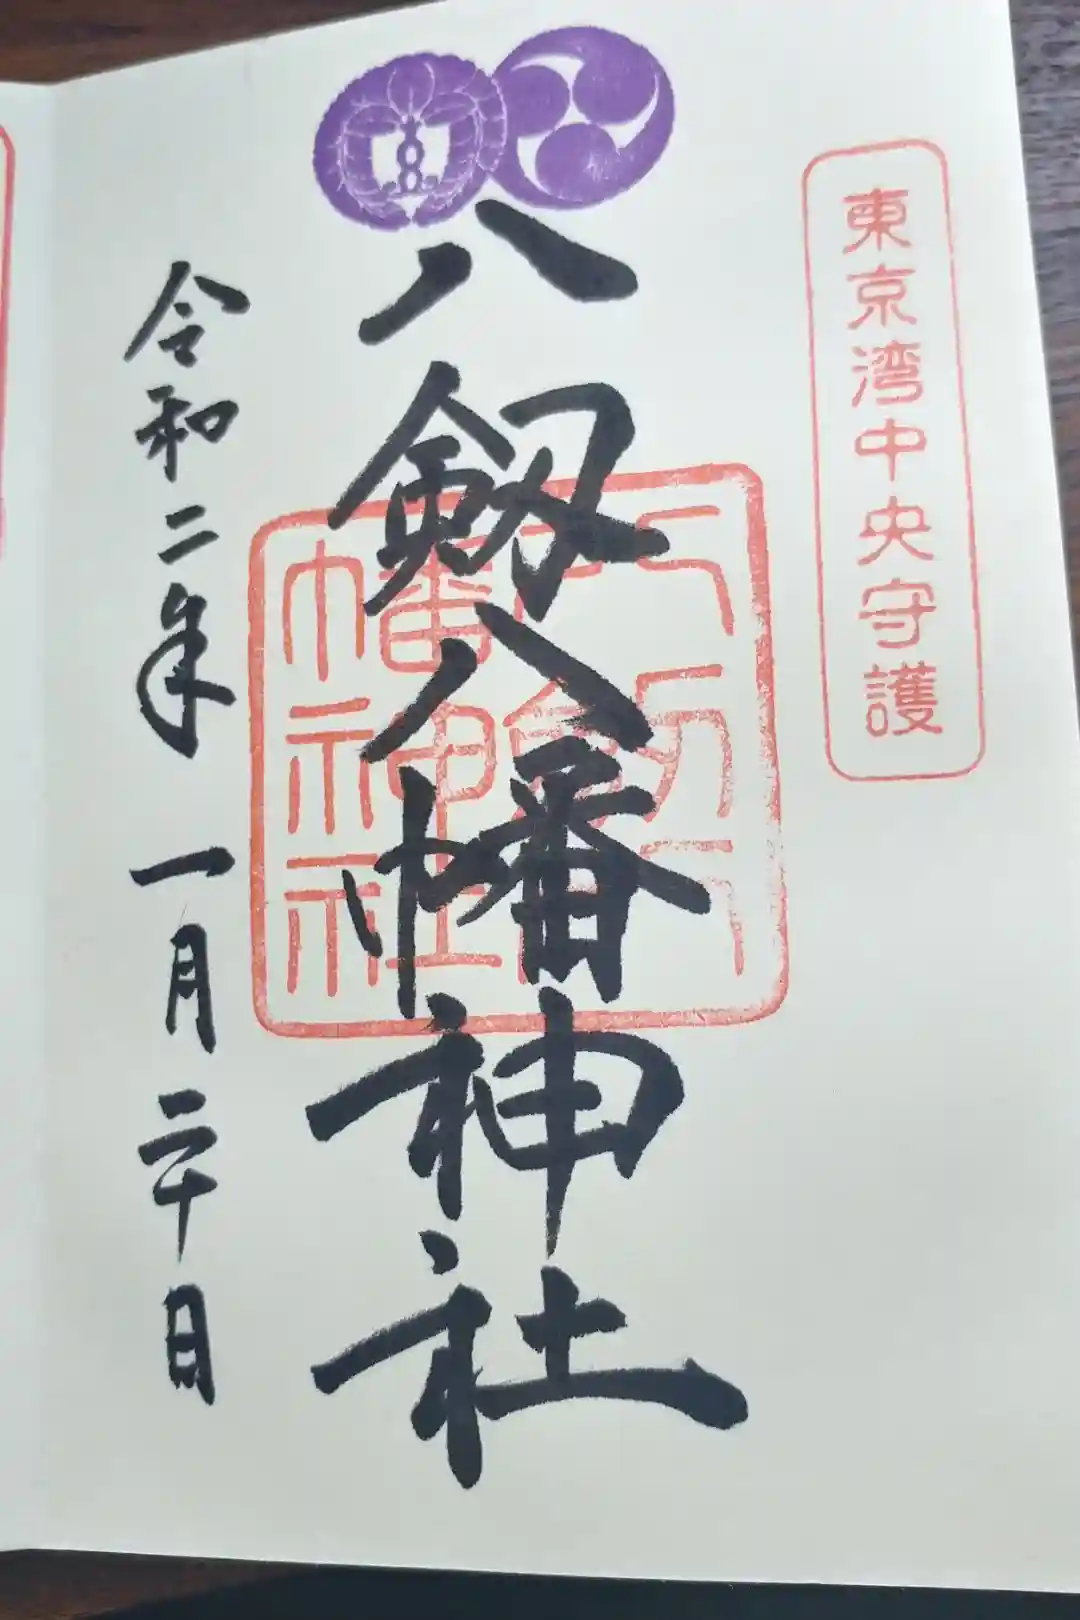 東京湾中央守護
八剱八幡神社
八剱八幡神社
令和二年一月二十日